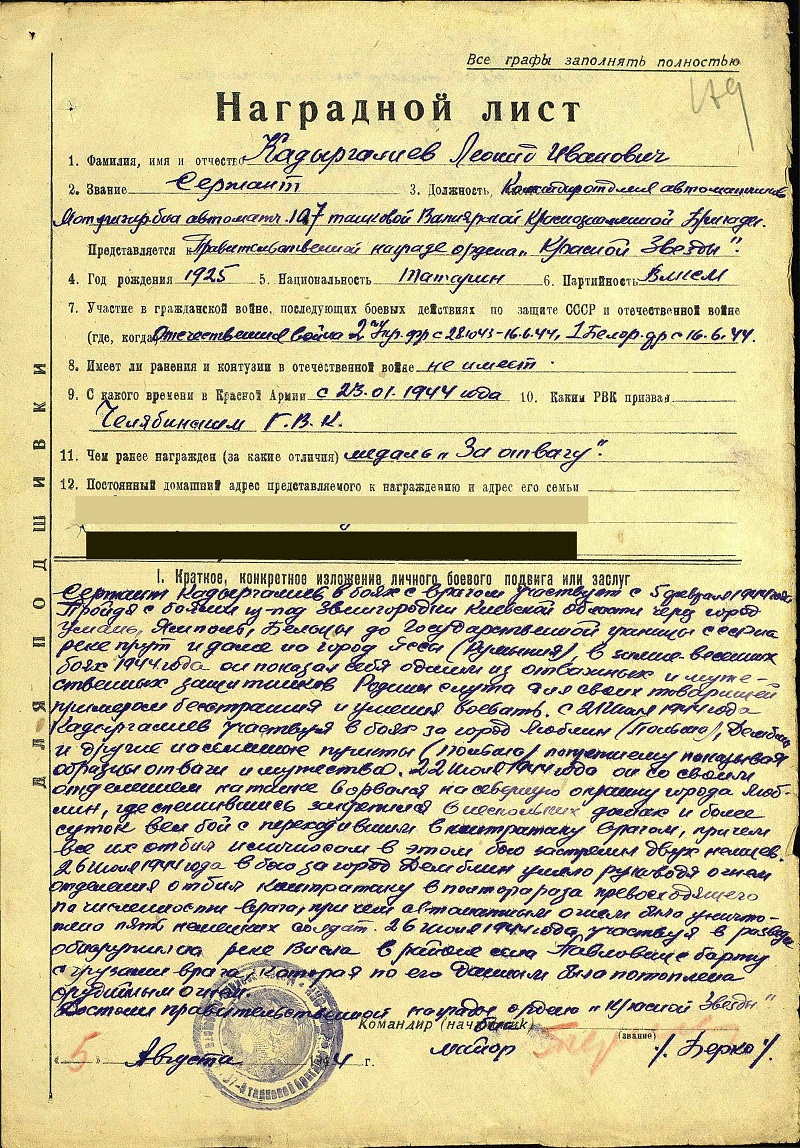 Все графы заполнять полностью
179
Наградной лист
1. Фамилия, имя и отчество Кадыргалиев Леонид Иванович
2. Звание Сержант 3. Должность, Командир отдния автоматчиков
Мотригирб-на автоматч. 107 танковой Вапнярской Краснознаменной Бригады.
Представляется к Правительственной награде ордена „Красной Звезды".
4. Год рождения 1925 5. Национальность Татарин 6. Партийность Влксм
7. Участие в гражданской войне, последующих боевых действиях по защите СССР и отечественной войне
(где, когда) Отечественная война 2 Укр. фр с 28.1.43-16.6.44, 1 Белор. фр с 16.6.44.
8. Имеет ли ранения и контузии в отечественной войне не имеет.
9. С какого времени в Красной Армии с 23.01.1944 года 10. Каким РВК призван
Челябинским Г.В.К.
11. Чем ранее награжден (за какие отличия) медаль „За отвагу".
12. Постоянный домашний адрес представляемого к награждению и адрес его семьи
1. Краткое, конкретное изложение личного боевого подвига или заслуг
Сержант Кадыргалиев в боях с врагом участвует с 5 февраля 1944 года
Пройдя с боями из-под Звенигородки Киевской области через город
Умань, Ямполь, Бельцы до Государственной границы СССР на
реке прут и далее на город Яссы (Румыния), в зимне-весенних
боях 1944 года он показал себя одним из отважных и муже-
ственных защитников Родины служа для своих товарищей
примером бесстрашия и умения воевать. С 21 июля 1944 года
Кадыргалиев участвуя в боях за город Люблин (Польша), Демблин
и другие населенные пункты (Польша) попрежнему показывал
образцы отваги и мужества. 22 июля 1944 года он со своим
отделением на танке ворвался на северную окраину города Люб-
лин, где спешившись закрепился в нескольких домах и более
суток вел бой с переходившим в контратаку врагом, причем
все их отбил и лично сам в этом бою застрелил двух немцев.
26 июля 1944 года в бою за город Демблин умело руководя огнем
отделения отбил контратаку в полтора раза превосходящего
по численности врага, при чем автоматным огнем было уничто-
жено пять немецких солдат. 26 июля 1944 года, участвуя в разведке
обнаружил на реке Висла в районе села Павловице баржу
с грузами врага, которая по его данным была потоплена
орудийным огнем.
Достоин правительственной награды ордена „Красной Звезды"
Командир (начальник)
(звание)
„5" Августа 1944 г. майор /Берко/.
ДЛЯ ПОДШИВКИ